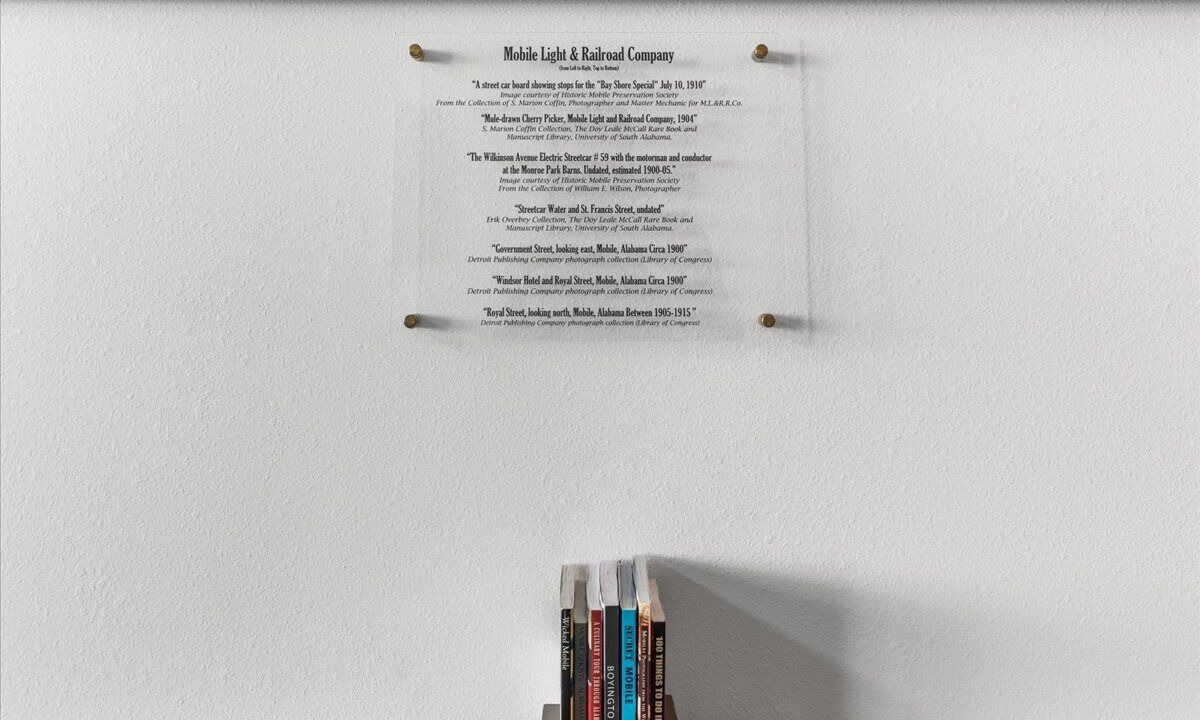 Mobile Light & Railroad Company
(from Left to Right, Top to Bottom)
“A street car board showing stops for the "Bay Shore Special" July 10, 1910”
Image courtesy of Historic Mobile Preservation Society
From the Collection of S. Marion Coffin, Photographer and Master Mechanic for M.L.&R.R.Co.
“Mule-drawn Cherry Picker, Mobile Light and Railroad Company, 1904”
S. Marion Coffin Collection, The Doy Leale McCall Rare Book and
Manuscript Library, University of South Alabama.
“The Wilkinson Avenue Electric Streetcar # 59 with the motorman and conductor
at the Monroe Park Barns. Undated, estimated 1900-05.”
Image courtesy of Historic Mobile Preservation Society
From the Collection of William E. Wilson, Photographer
“Streetcar Water and St. Francis Street, undated”
Erik Overbey Collection, The Doy Leale McCall Rare Book and
Manuscript Library, University of South Alabama.
“Government Street, looking east, Mobile, Alabama Circa 1900”
Detroit Publishing Company photograph collection (Library of Congress)
“Windsor Hotel and Royal Street, Mobile, Alabama Circa 1900”
Detroit Publishing Company photograph collection (Library of Congress)
“Royal Street, looking north, Mobile, Alabama Between 1905-1915 ”
Detroit Publishing Company photograph collection (Library of Congress)
Wicked Mobile
A CULINARY TOUR THROUGH ALAB
BOYINGTO
SECRET MOBILE
100 THINGS TO DO I